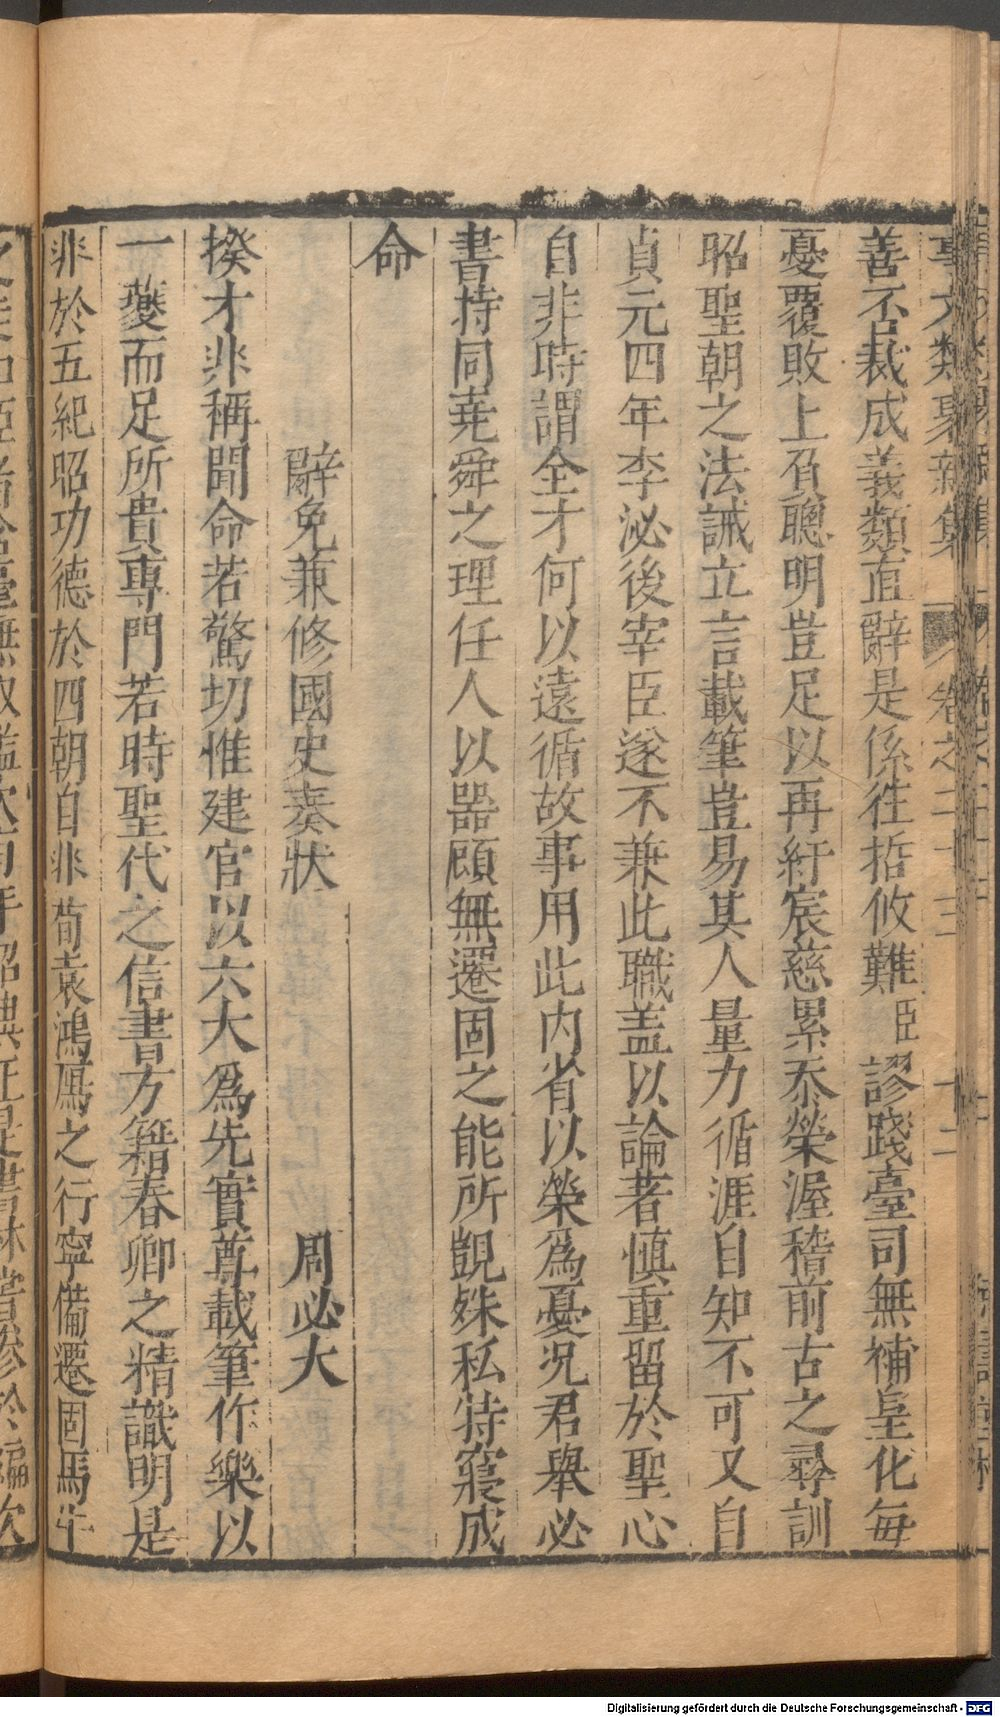 事文類聚新集 卷之二十三 十二
善否裁成義類直辭是係徃哲攸難臣謬踐臺司無補皇化每
憂覆敗上孤聰明豈足以再紆宸慈累忝榮渥稽前古之尋訓
昭聖朝之法誡立言載筆豈易其人量力循涯自知不可又自
貞元四年李泌後宰臣遂不兼此職盖以論著慎重留於聖心
自非時謂全才何以遠循故事用此内省以榮爲憂况君舉必
書持同堯舜之理任人以器顧無遷固之能所覬殊私特寢成
命
辭免兼修國史奏狀 周必大
揆才非稱聞命若驚切惟建官以六大爲先實尊載筆作樂以
一夔而足所貴專門若時聖代之信書方籍春卿之精識明是
非於五紀昭功德於四朝自非荀袁鴻鴈之行寧備遷固馬牛
Digitalisierung gefördert durch die Deutsche Forschungsgemeinschaft - DFG